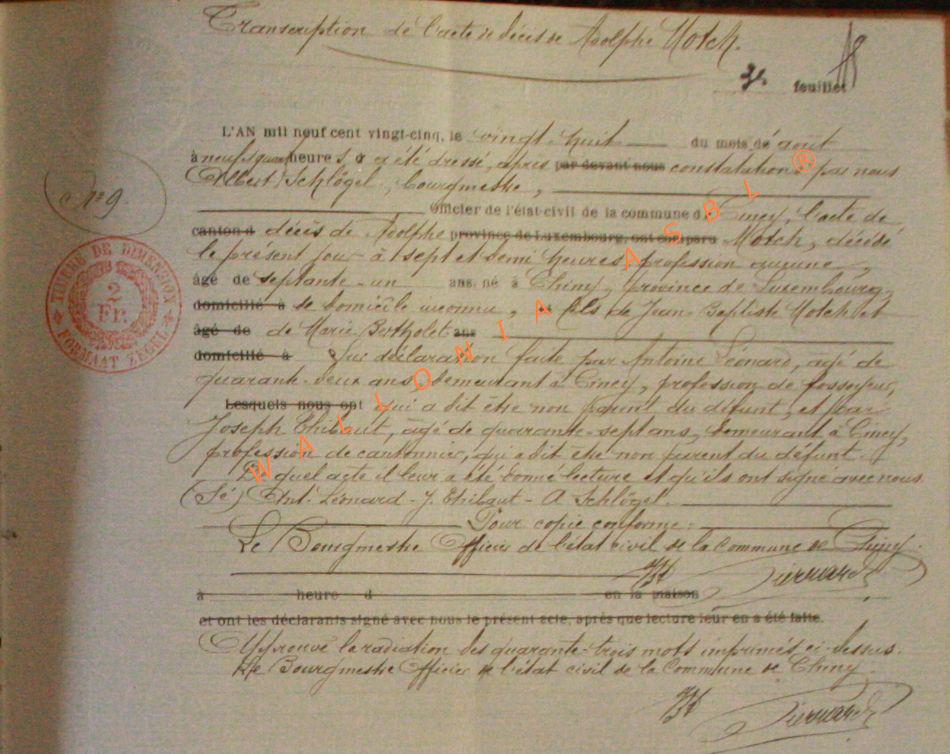 Transcription de l'acte de décès de Adolphe Hotch.
3e feuillet
L'AN mil neuf cent vingt-cinq, le vingt-huit du mois de août
à neuf heures, a été dressé, après par devant nous constatation, par nous
Albert Schlögel, bourgmestre,
Officier de l'état-civil de la commune de Ciney, l'acte de
canton d décès de Adolphe province de Luxembourg, ont comparu Hotch, décédé
le présent jour à sept et demi heures, profession aucune,
âgé de septante-un ans, né à Chiny, province de Luxembourg,
domicilié à de domicile inconnu, et fils de Jean Baptiste Hotch et
âgé de de Marie Bertholet ans
domicilié à Sur déclaration faite par Antoine Léonard, âgé de
quarante-deux ans, demeurant à Ciney, profession de fossoyeur,
Lesquels nous ont qui a dit être non parent du défunt, et par
Joseph Thibaut, âgé de quarante-sept ans, demeurant à Ciney,
profession de cantonnier, qui a dit être non parent du défunt.
Du quel acte il leur a été donné lecture et qu'ils ont signé avec nous.
(Sé) Ant. Léonard - J. Thibaut - A Schlögel.
Pour copie conforme :
Le Bourgmestre Officier de l'état civil de la Commune de Chiny.
à heure d en la maison
et ont les déclarants signé avec nous le présent acte, après que lecture leur en a été faite.
Approuvé la radiation des quarante-trois mots imprimés ci-dessus.
Le Bourgmestre Officier de l'état civil de la Commune de Chiny.
N° 9.
TIMBRE DE DIMENSION
2
Fr.
FORMAAT ZEGEL
WALLONIA ASBL ®